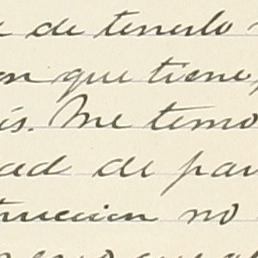 de tenerlo
que tiene,
is. Me temo
ad de par
truccion no